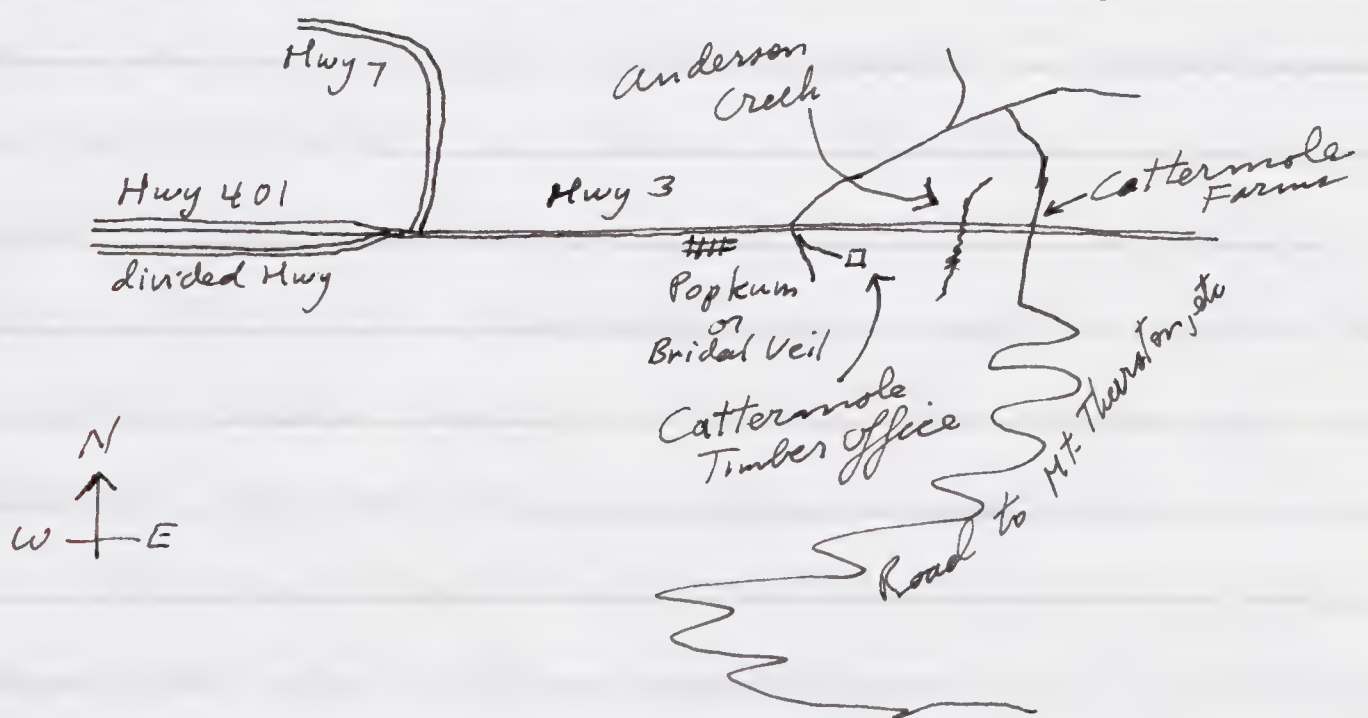 Hwy 7
Anderson
Creek
Hwy 401
Hwy 3
Cattermole
Farms
divided Hwy
Popkum
or
Bridal Veil
Cattermole
Timber Office
Road to Mt. Thurston, etc
N
W
E